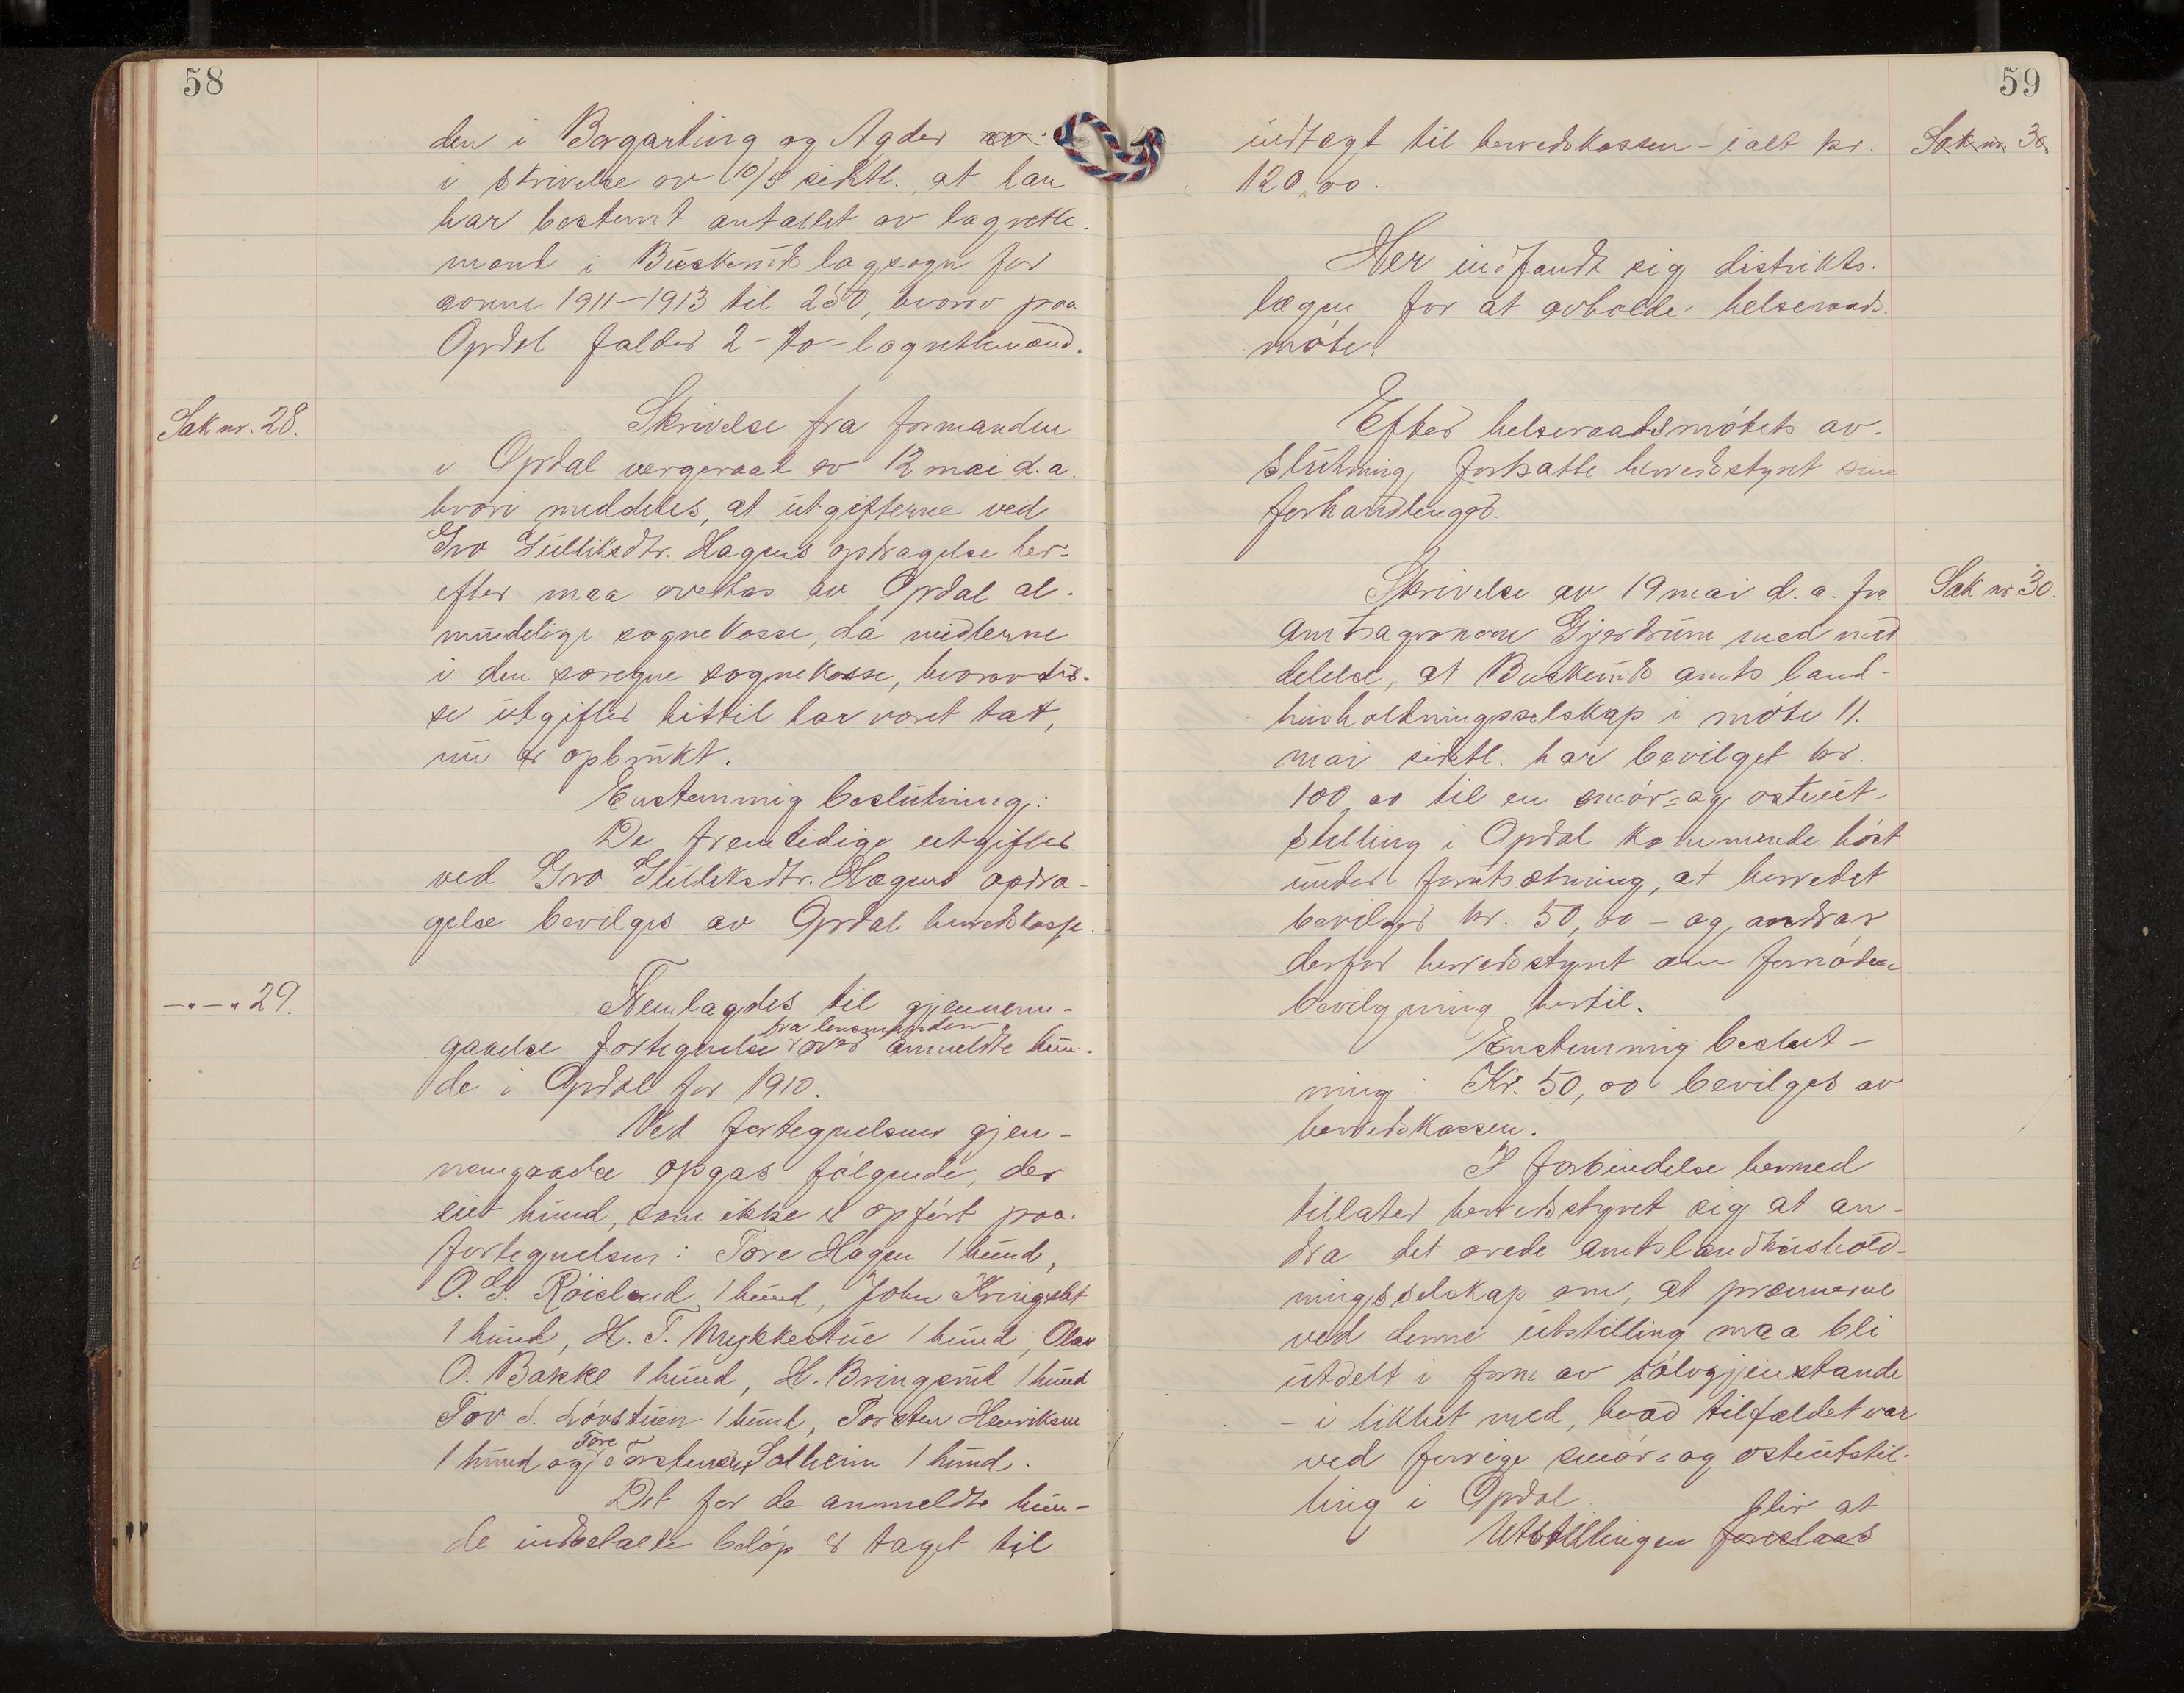 58
den i Borgarting og Agder
i skrivelse av 10/5 sidstl. at han
har bestemt antallet av lagrette-
mænd i Buskerud lagsogn for
aarene 1911-1913 til 250, hvorav paa
Opdal falder 2 - to - lagrettemænd.
Sak nr. 28.
Skrivelse fra formanden
i Opdal vergeraad av 12 mai d.a.
hvori meddeles, at utgifterne ved
Gro Gulliksdtr. Hagens opdragelse her-
efter maa overtas av Opdal al-
mindelige sognekasse, da midlerne
i den særegne sognekasse, hvorav dis-
se utgifter hittil har været tat,
nu er opbrukt.
Enstemmig beslutning:
De fremtidige utgifter
ved Gro Gulliksdtr. Hagens opdra-
gelse bevilges av Opdal herredskasse.
-"-"- 29.
Fremlagdes til gjennem-
fra lensmanden
gaaelse fortegnelse over anmeldte hun-
de i Opdal for 1910.
Ved fortegnelsens gjen-
nemgaaelse opgas følgende, der
eiet hund, som ikke er opført paa
fortegnelsen: Tore Hagen 1 hund,
O. G. Røisland 1 hund, John Kringseth
1 hund, H. T. Mykkestue 1 hund, Olav
O. Bakke 1 hund, H. Bringsrud 1 hund
Tov S. Løvstuen 1 hund, Torsten Henriksen
Tore
1 hund og Torstensen Solheim 1 hund.
Det for de anmeldte hun-
de indbetalte beløp er taget til
59
indtægt til herredskassen - ialt kr.
Sak nr. 30
120,00.
Her indfandt sig distrikts-
lægen for at avholde helseraads-
møte.
Efter helseraadsmøtets av-
slutning fortsatte herredsstyret sine
forhandlinger.
Sak nr 30.
Skrivelse av 19 mai d.a. fra
amtsagronom Gjerdrum med med
delelse, at Buskerud amts land-
husholdningsselskap i møte 11.
mai sidstl. har bevilget kr.
100,00 til en smør- og osteut-
stilling i Opdal kommende høst
under forutsætning, at herredet
bevilger kr. 50,00 - og andrar
derfor herredsstyret om fornøden
bevilgning hertil.
Enstemmig beslut-
ning: Kr. 50,00 bevilges av
herredskassen.
I forbindelse hermed
tillater herredsstyret sig at an-
dra det ærede amtslandhushold-
ningsselskap om, at præmierne
ved denne utstilling maa bli
utdelt i form av sølvgjenstande
- i likhet med, hvad tilfældet var
ved forrige smør- og osteutstil-
ling i Opdal.
blir at
Utstillingen foreslaas